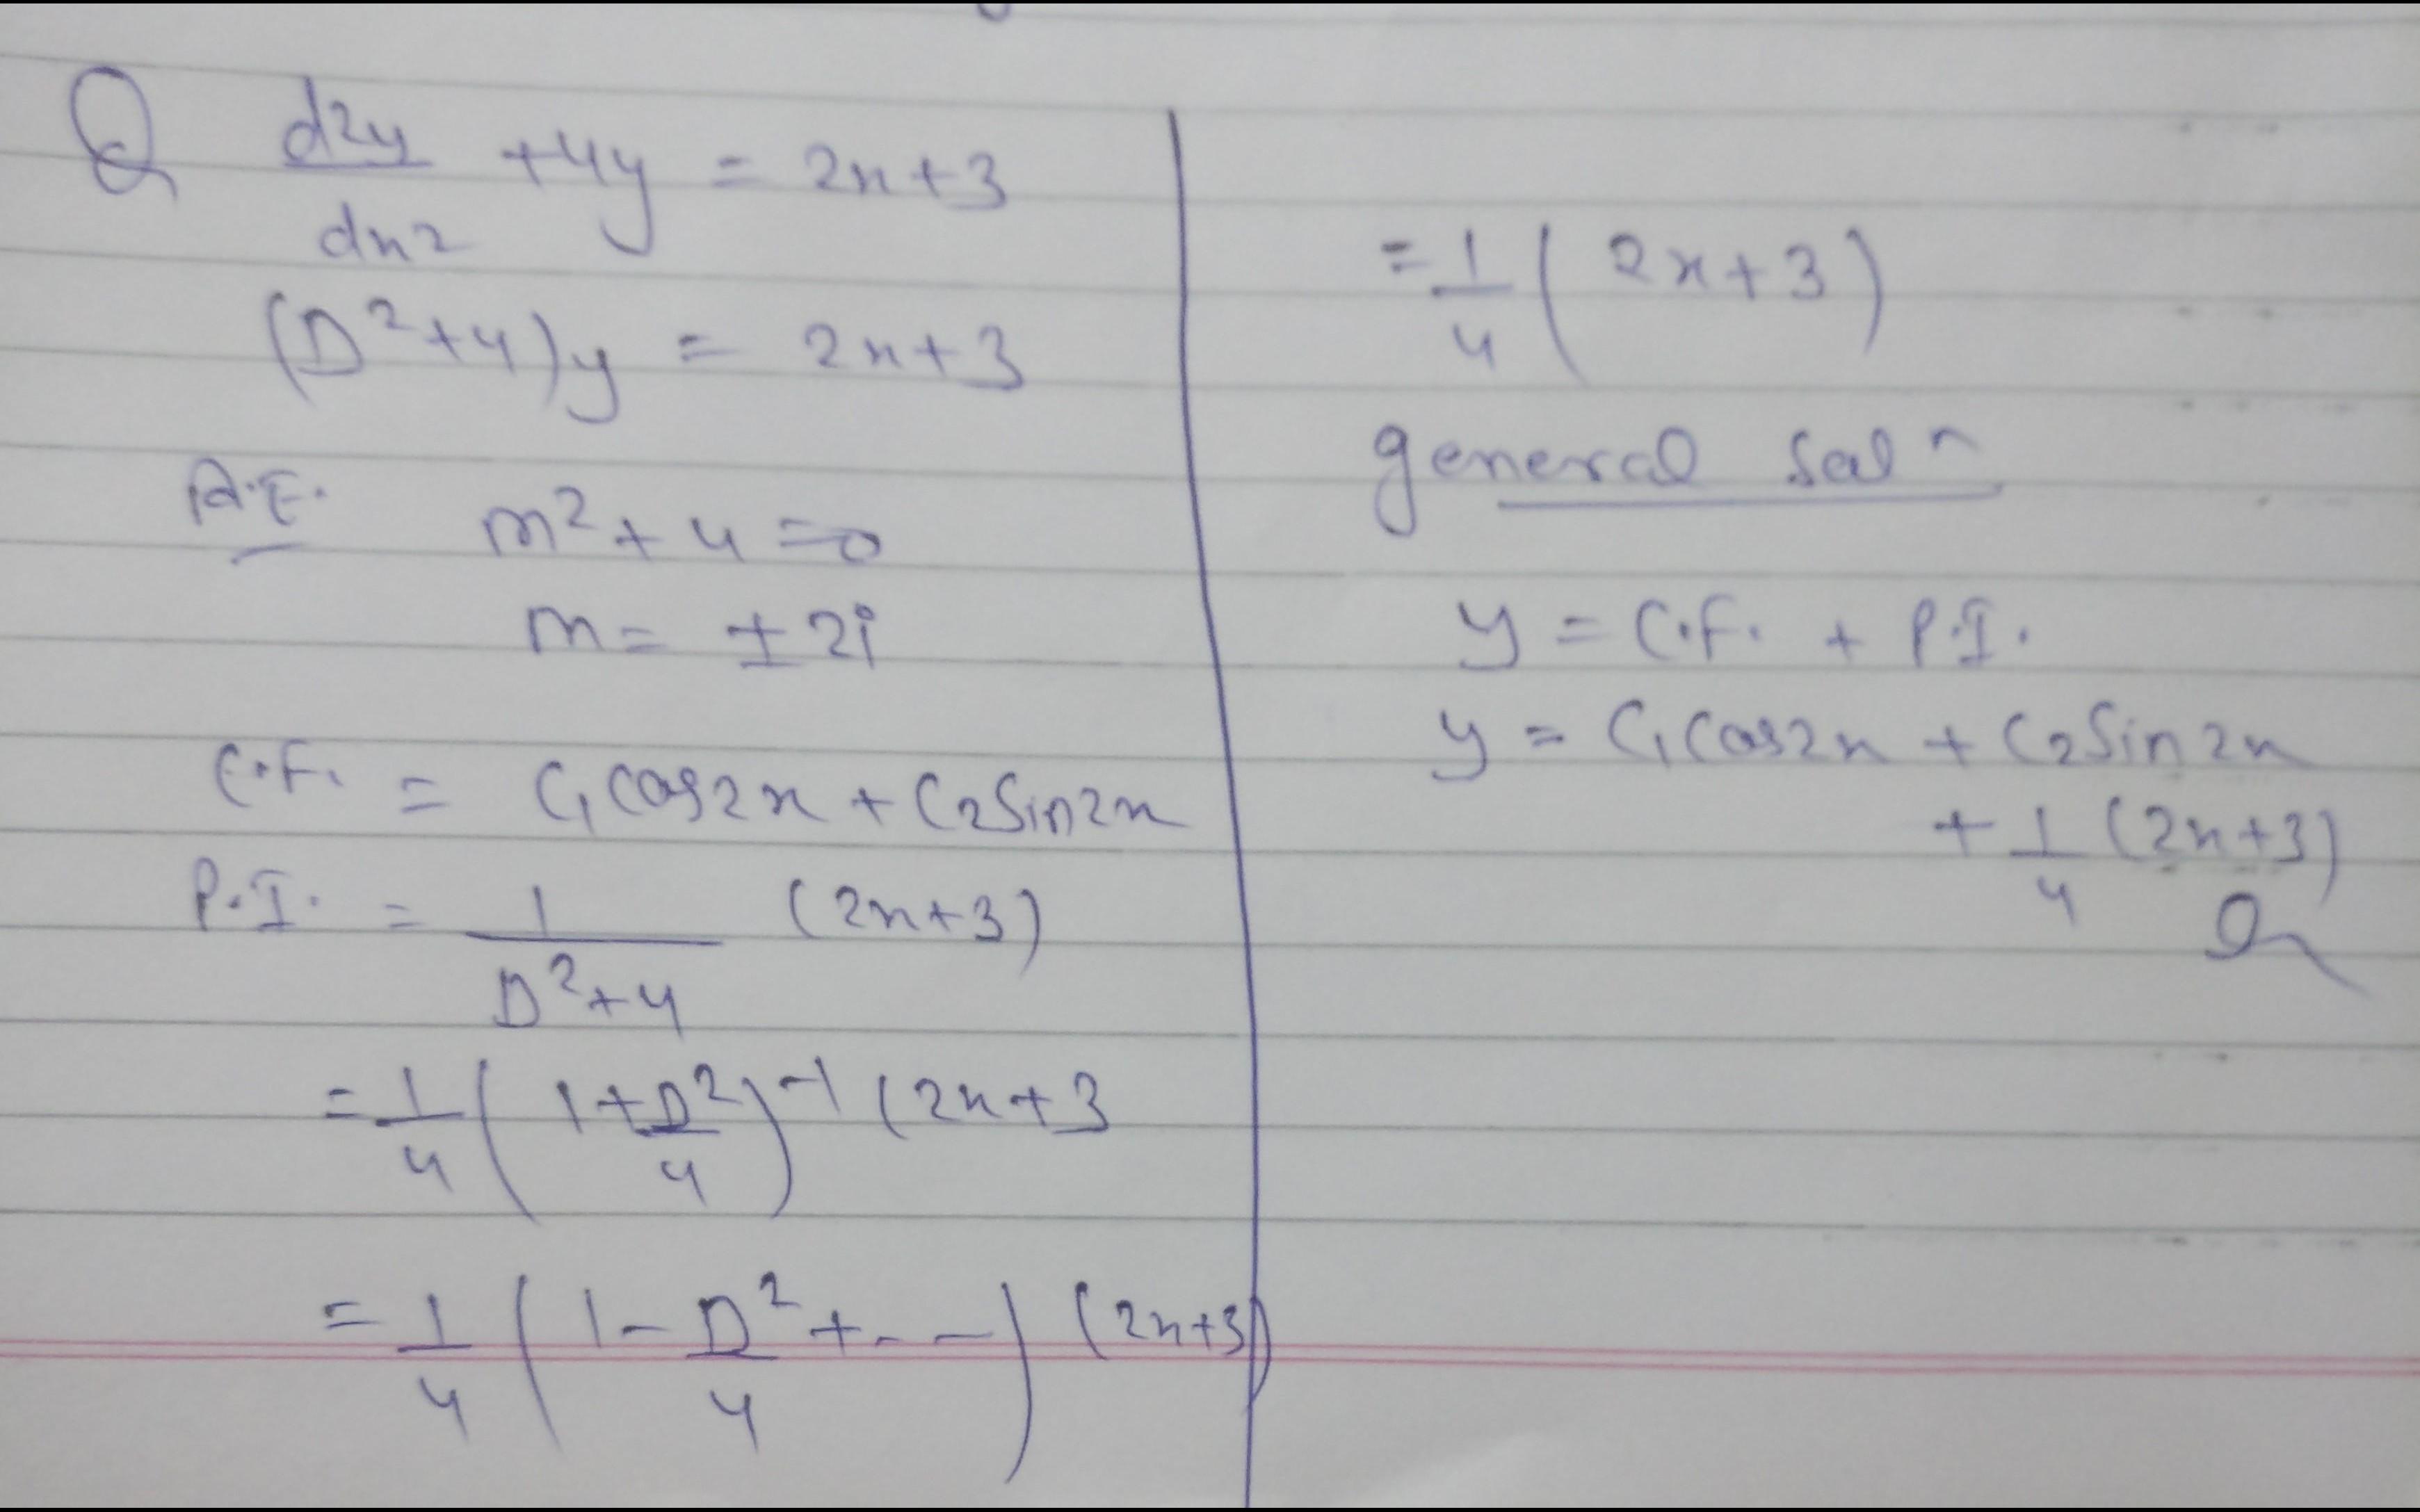 Q d2y/dx2 +4y = 2x+3
(D²+4)y = 2x+3
A.E. m²+4=0
m= ±2i
C.F. = C₁Cos2x + C₂Sin2x
P.I. = 1/(D²+4) (2x+3)
= 1/4 (1+D²/4)⁻¹ (2x+3
= 1/4 (1-D²/4+---) (2x+3)
= 1/4 (2x+3)
general Solⁿ
y = C.F. + P.I.
y = C₁Cos2x + C₂Sin2x
+ 1/4 (2x+3)